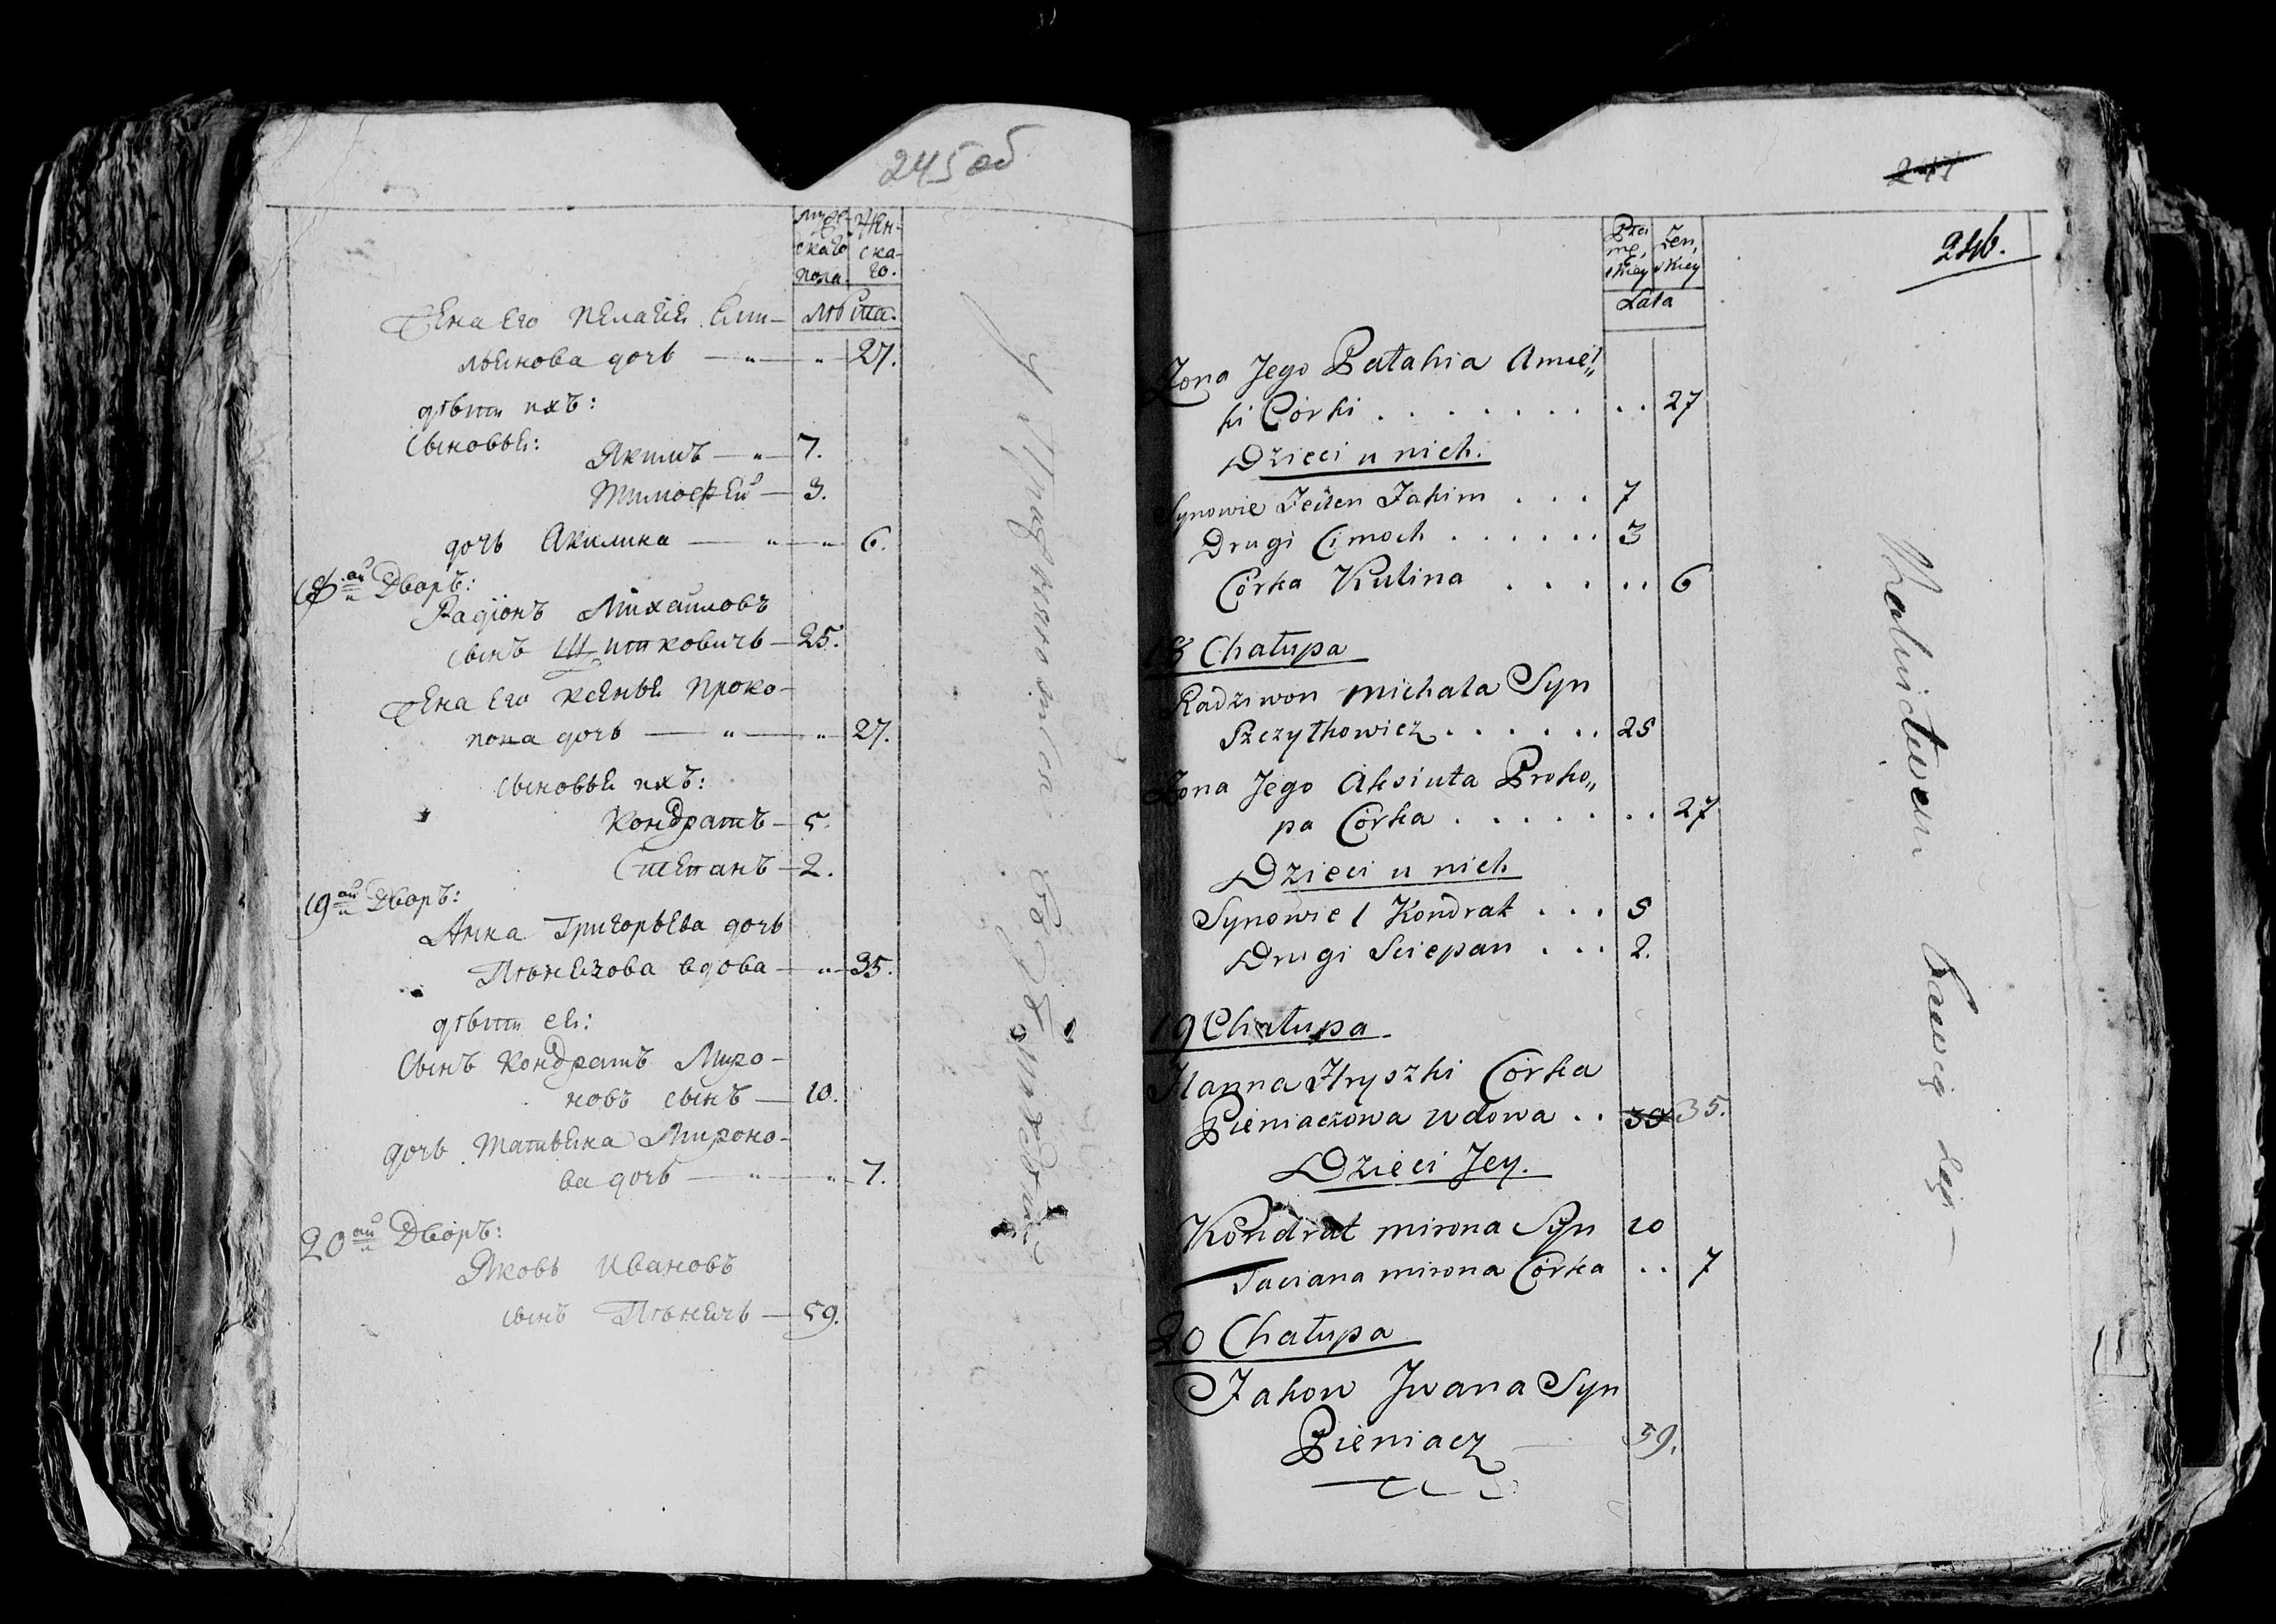 245 об
муж-
скаго
пола
жен-
ска-
го.
лѣта.
Жена его Пелагея Еми-
льянова дочь — „ — „ 27.
дѣти ихъ:
сыновья: Якимъ — „ — 7.
Тимофей — 3.
дочь Акилина — „ — „ 6.
18.ай Дворъ:
Радіонъ Михайловъ
сынъ Щитковичь — 25.
Жена его Ксенья Проко-
попа дочь — „ — „ 27.
сыновья ихъ:
Кондратъ — 5.
Степанъ — 2.
19ай Дворъ:
Анна Григорьева дочь
Пѣнязова вдова — „ 35.
дѣти ея:
Сынъ Кондратъ Миро-
новъ сынъ — 10.
дочь Татьяна Мироно-
ва дочь — „ — „ 7.
20ай Дворъ:
Яковъ Ивановъ
сынъ Пѣнячь — 59.
246.
Męskiey
Żen,
skiey
Lata
Żona Jego Pałahia Amel„
ki Córki . . . . . . . . . 27
Dzieci u nich.
Synowie Jeden Jakim . . . 7
Drugi Cimoch . . . . . . 3
Córka Kulina . . . . . 6
18 Chałupa
Radziwon Michała Syn
Szczytkowicz . . . . . . 25
Żona Jego Aksiuta Proko„
pa Córka . . . . . . . 27
Dzieci u nich
Synowie 1 Kondrat . . . 5
Drugi Sciepan . . . 2.
19 Chałupa
Hanna Hryszki Córka
Pieniaczowa wdowa . . 35.
Dzieci Jey.
Kondrat Mirona Syn 10
Taciana Mirona Córka . . 7
20 Chałupa
Jakow Jwana Syn
Pieniacz — 59.